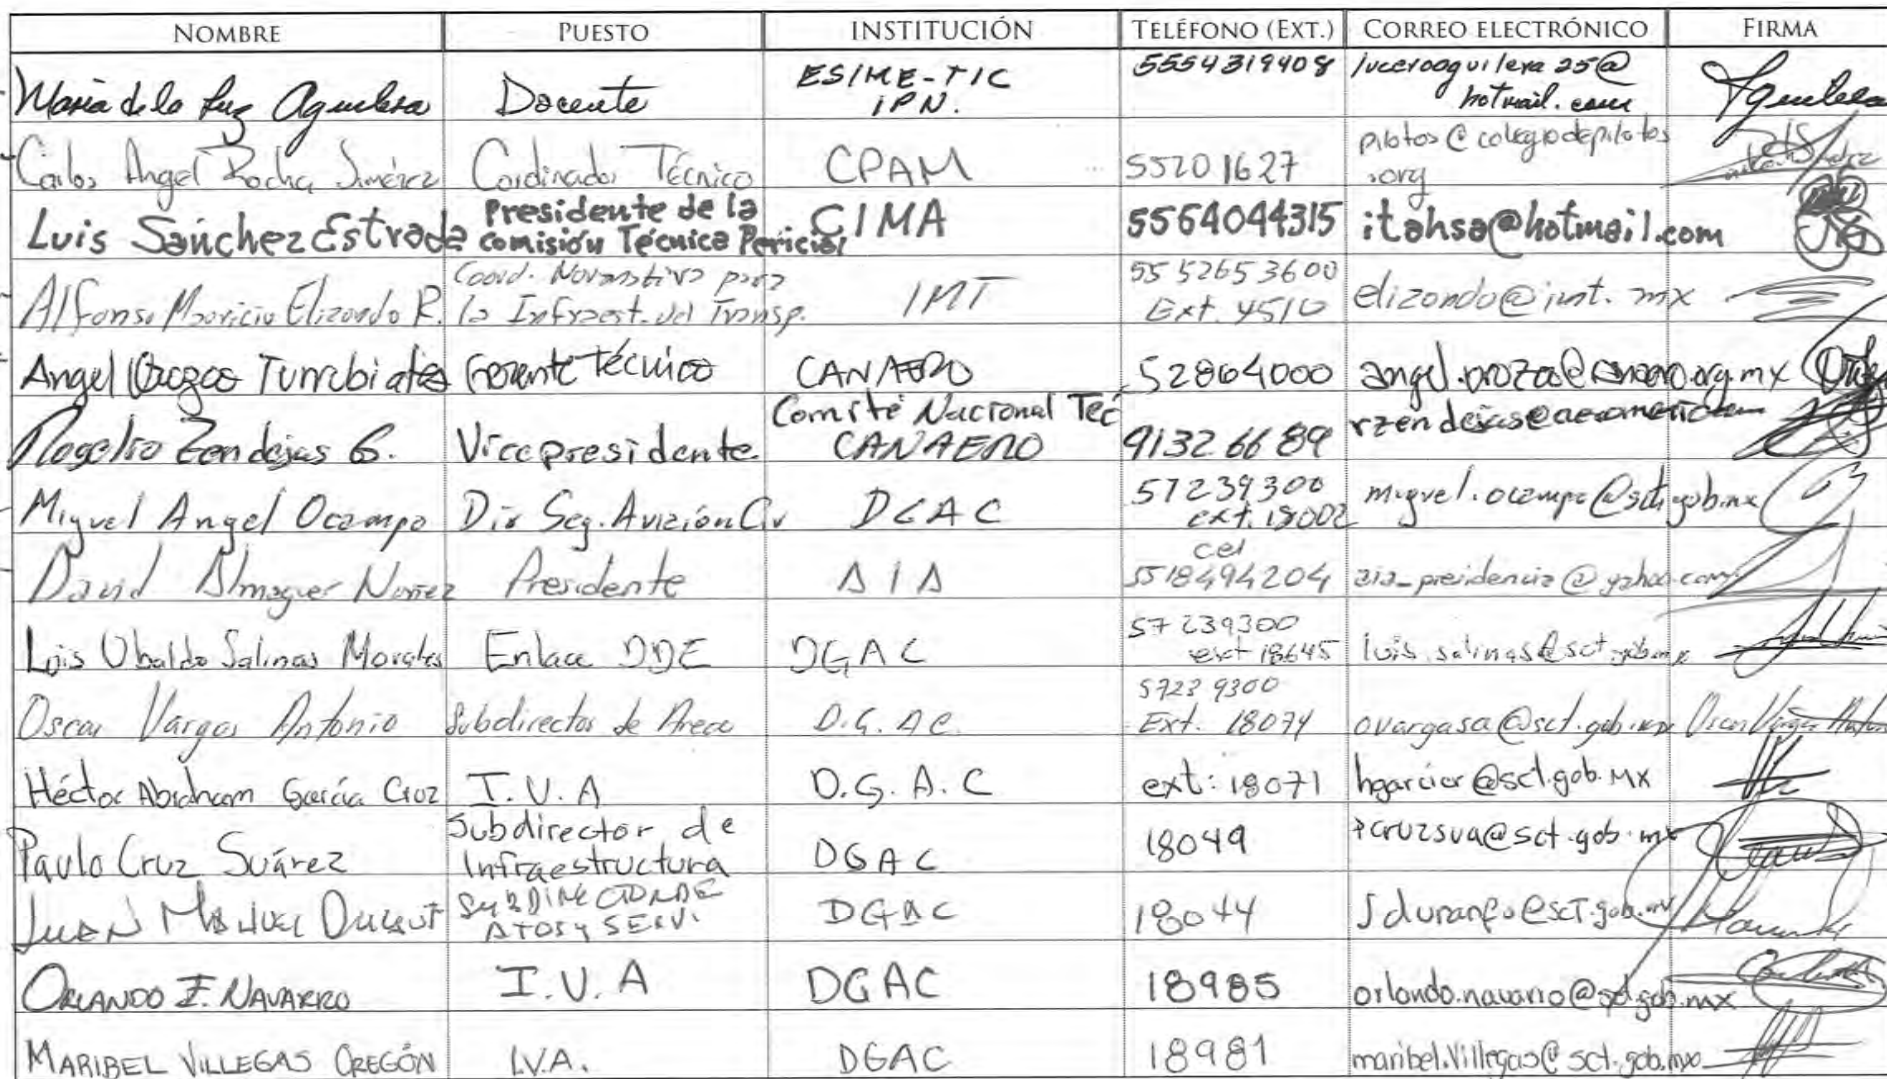 NOMBRE PUESTO INSTITUCIÓN TELÉFONO (EXT.) CORREO ELECTRÓNICO FIRMA
María de la Luz Aguilera Docente ESIME-TIC IPN. 5554319408 luceroaguilera25@hotmail.com Aguilera
Carlos Angel Rocha Jiménez Cordinador Técnico CPAM 55201627 pilotos@colegiodepilotos.org
Luis Sánchez Estrada Presidente de la comisión Técnica Pericial CIMA 5564044315 itahsa@hotmail.com
Alfonso Mauricio Elizondo R. Coord. Normativa para la Infraest. del Transp. IMT 5552653600 Ext. 4510 elizondo@imt.mx
Angel Orozco Turrubiates Gerente Técnico CANAERO 52864000
Rogelio Zendejas G. Vicepresidente Comité Nacional Tec CANAERO 91326689
Miguel Angel Ocampo Dir Seg. Aviación Civ DGAC 57239300 ext. 18002 miguel.ocampo@sct.gob.mx
David Almaguer Nuñez Presidente AIA cel 5518494204 aia_preidencia@yahoo.com
Luis Ubaldo Salinas Morales Enlace DDE DGAC 57239300 ext 18645 luis.salinas@sct.gob.mx
Oscar Vargas Antonio Subdirector de Area D.G.AC. 57239300 Ext. 18074 ovargasa@sct.gob.mx Oscar Vargas Antonio
Héctor Abraham García Cruz I.V.A D.G.A.C ext: 18071 hgarcicr@sct.gob.mx
Paulo Cruz Suárez Subdirector de Infraestructura DGAC 18049 pcruzsua@sct.gob.mx
JUAN MANUEL DGAC 18044
ORLANDO F. NAVARRO I.V.A DGAC 18985 orlando.navarro@sct.gob.mx
MARIBEL VILLEGAS OREGÓN I.V.A. DGAC 18981 maribel.villegas@sct.gob.mx